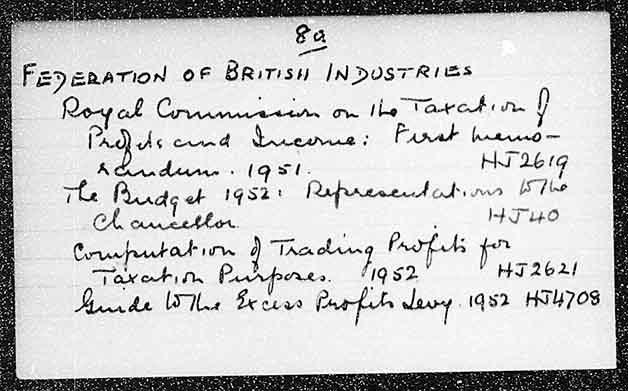 8a
FEDERATION OF BRITISH INDUSTRIES
Royal Commission on the Taxation of
Profits and Income: First memo-
randum. 1951. HJ2619
The Budget 1952: Representations to the
Chancellor HJ40
Computation of Trading Profits for
Taxation Purposes. 1952 HJ2621
Guide to the Excess Profits Levy. 1952 HJ4708